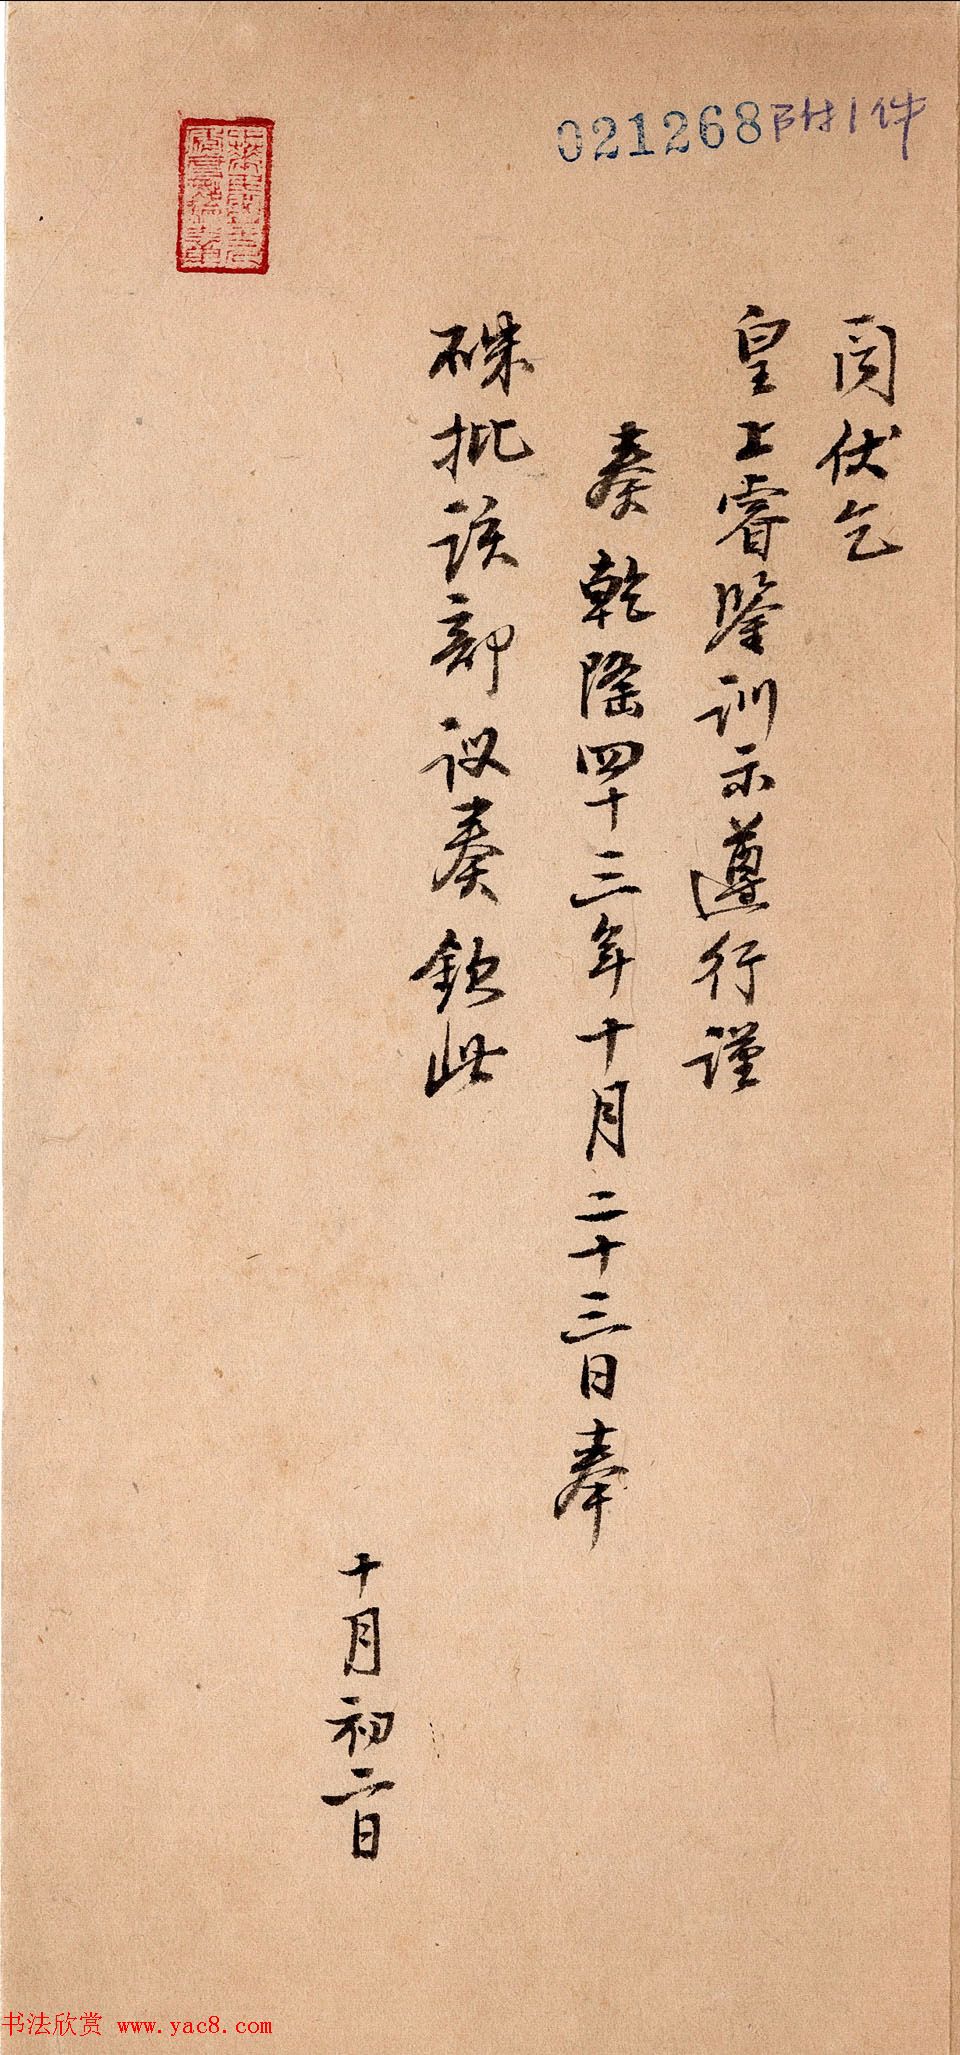 021268 附1件
閱伏乞
皇上睿鑒訓示遵行謹
奏乾隆四十三年十月二十三日奉
硃批該部议奏欽此
十月初二日
书法欣赏 www.yac8.com